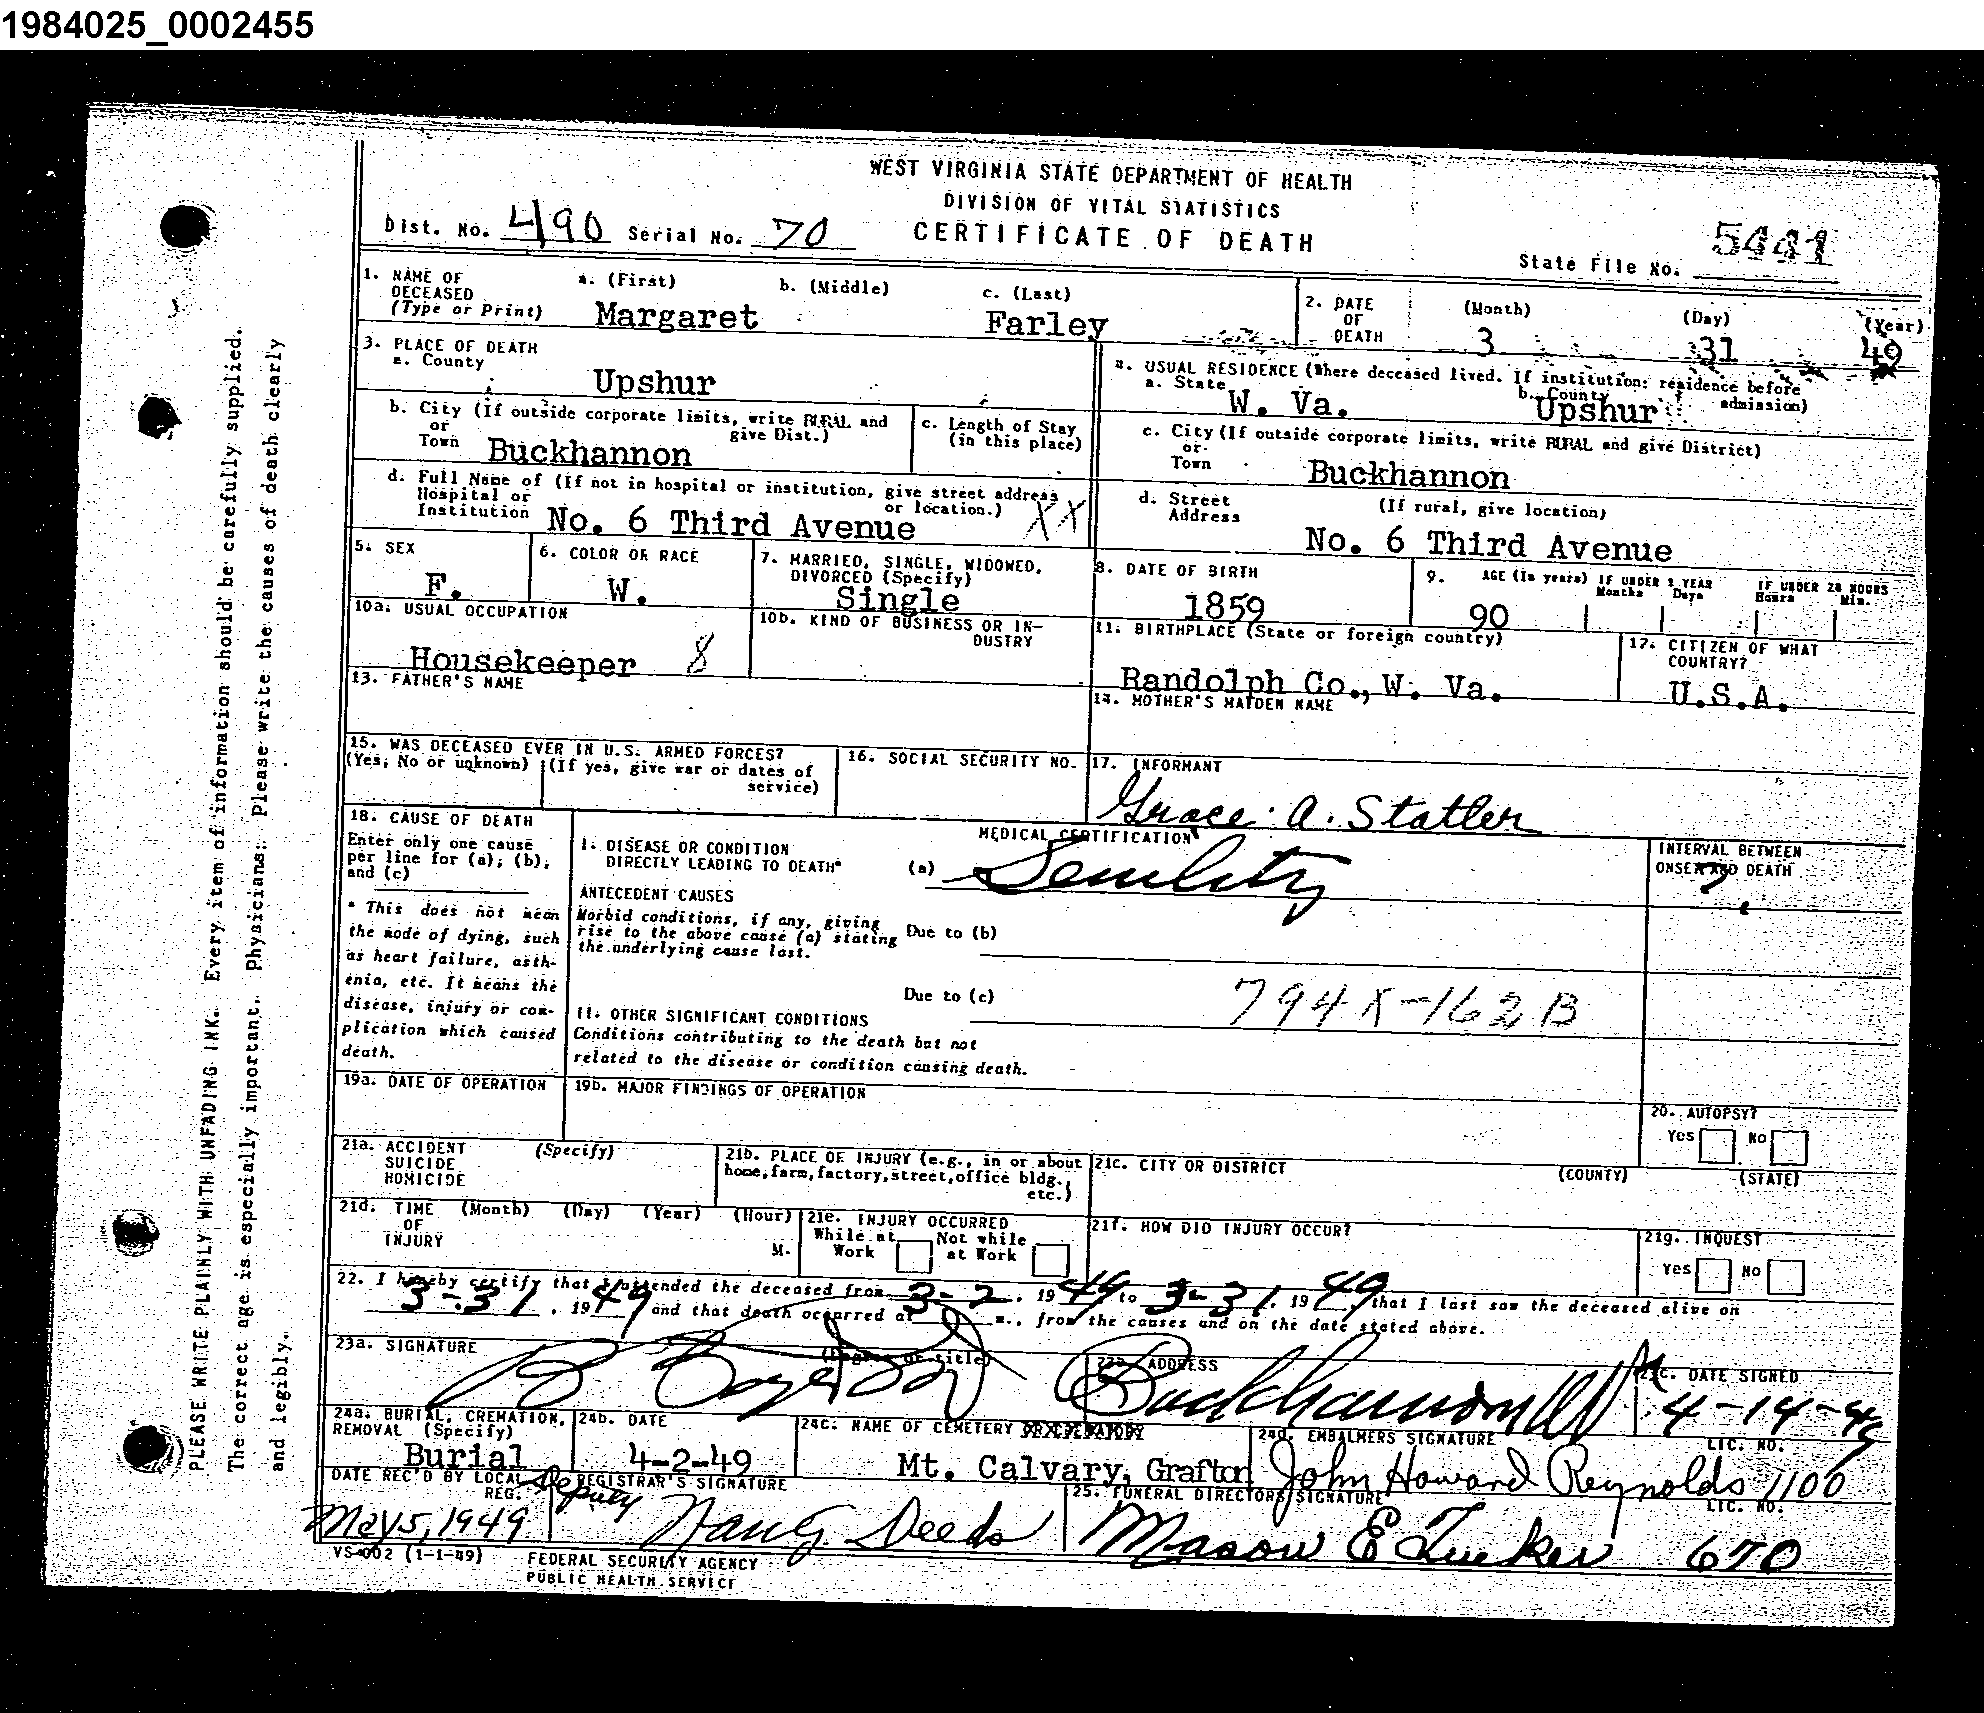 1984025_0002455
WEST VIRGINIA STATE DEPARTMENT OF HEALTH
DIVISION OF VITAL STATISTICS
Dist. No. 490 Serial No. 70 CERTIFICATE OF DEATH
State File No. 5441
1. NAME OF DECEASED (Type or Print) a. (First) b. (Middle) c. (Last)
Margaret Farley
2. DATE OF DEATH (Month) (Day) (Year)
3 31 49
3. PLACE OF DEATH
a. County
Upshur
b. City (If outside corporate limits, write RURAL and give Dist.)
or Town Buckhannon
c. Length of Stay (in this place)
d. Full Name of (If not in hospital or institution, give street address or location.)
Hospital or Institution No. 6 Third Avenue XX
USUAL RESIDENCE (Where deceased lived. If institution: residence before admission)
a. State W. Va. b. County Upshur
c. City (If outside corporate limits, write RURAL and give District)
or Town Buckhannon
d. Street Address (If rural, give location)
No. 6 Third Avenue
5. SEX
F.
6. COLOR OR RACE
W.
7. MARRIED, SINGLE, WIDOWED, DIVORCED (Specify)
Single
8. DATE OF BIRTH
1859
9. AGE (In years) IF UNDER 1 YEAR Months Days IF UNDER 24 HOURS Hours Min.
90
10a. USUAL OCCUPATION
Housekeeper 8
10b. KIND OF BUSINESS OR INDUSTRY
11. BIRTHPLACE (State or foreign country)
Randolph Co., W. Va.
12. CITIZEN OF WHAT COUNTRY?
U.S.A.
13. FATHER'S NAME
14. MOTHER'S MAIDEN NAME
15. WAS DECEASED EVER IN U.S. ARMED FORCES?
(Yes, No or unknown) (If yes, give war or dates of service)
16. SOCIAL SECURITY NO.
17. INFORMANT
Grace A. Statler
18. CAUSE OF DEATH
Enter only one cause per line for (a), (b), and (c)
* This does not mean the mode of dying, such as heart failure, asthenia, etc. It means the disease, injury or complication which caused death.
MEDICAL CERTIFICATION
I. DISEASE OR CONDITION DIRECTLY LEADING TO DEATH* (a) Senility
INTERVAL BETWEEN ONSET AND DEATH
?
ANTECEDENT CAUSES
Morbid conditions, if any, giving rise to the above cause (a) stating the underlying cause last.
Due to (b)
Due to (c)
794X-162B
II. OTHER SIGNIFICANT CONDITIONS
Conditions contributing to the death but not related to the disease or condition causing death.
19a. DATE OF OPERATION
19b. MAJOR FINDINGS OF OPERATION
20. AUTOPSY?
Yes No
21a. ACCIDENT SUICIDE HOMICIDE (Specify)
21b. PLACE OF INJURY (e.g., in or about home, farm, factory, street, office bldg., etc.)
21c. CITY OR DISTRICT (COUNTY) (STATE)
21d. TIME OF INJURY (Month) (Day) (Year) (Hour) M.
21e. INJURY OCCURRED
While at Work Not while at Work
21f. HOW DID INJURY OCCUR?
21g. INQUEST
Yes No
22. I hereby certify that I attended the deceased from 3-2, 1949 to 3-31, 1949, that I last saw the deceased alive on
3-31, 1949 and that death occurred at m., from the causes and on the date stated above.
23a. SIGNATURE (Degree or title)
23b. ADDRESS
Buckhannon W Va
23c. DATE SIGNED
4-14-49
24a. BURIAL, CREMATION, REMOVAL (Specify)
Burial
24b. DATE
4-2-49
24c. NAME OF CEMETERY
Mt. Calvary, Grafton
24d. EMBALMERS SIGNATURE LIC. NO.
John Howard Reynolds 1100
DATE REC'D BY LOCAL REG.
May 5, 1949
REGISTRAR'S SIGNATURE
Deputy Deeds
25. FUNERAL DIRECTORS SIGNATURE LIC. NO.
Mason E Tucker 670
VS-002 (1-1-49) FEDERAL SECURITY AGENCY
PUBLIC HEALTH SERVICE
PLEASE WRITE PLAINLY WITH UNFADING INK. Every item of information should be carefully supplied.
The correct age is especially important. Physicians: Please write the causes of death clearly
and legibly.